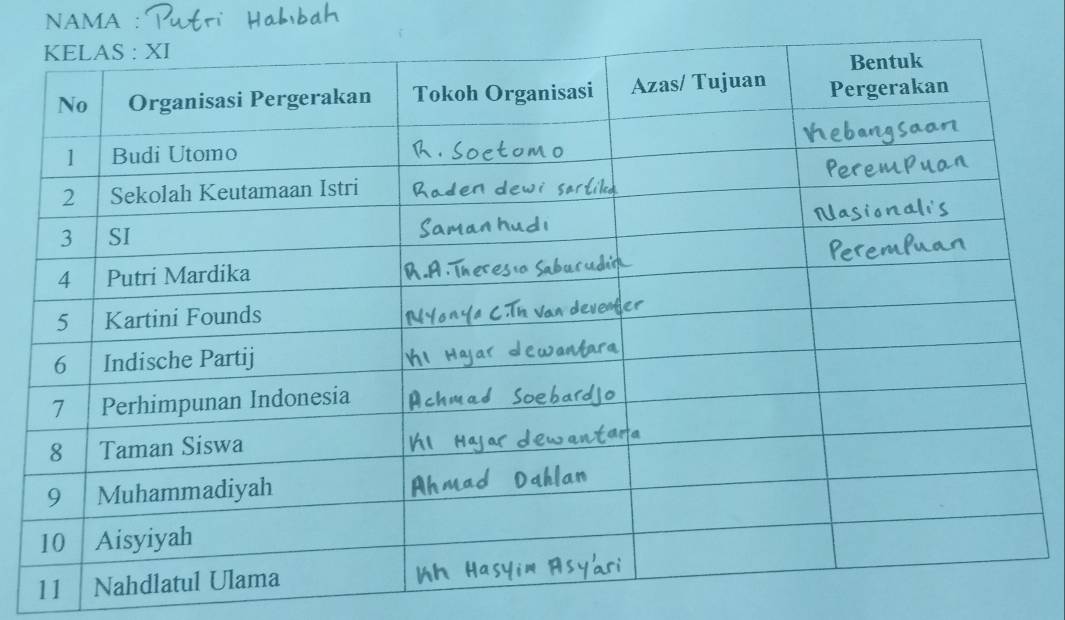 NAMA : Putri Habibah
KELAS : XI
No Organisasi Pergerakan Tokoh Organisasi Azas/ Tujuan Bentuk Pergerakan
1 Budi Utomo R. Soetomo Kebangsaan
2 Sekolah Keutamaan Istri Raden dewi sartika Perempuan
3 SI Samanhudi Nasionalis
4 Putri Mardika R.A. Theresia Saburudin Perempuan
5 Kartini Founds Nyonya C.Th van deventer
6 Indische Partij Ki Hajar dewantara
7 Perhimpunan Indonesia Achmad Soebardjo
8 Taman Siswa Ki Hajar dewantara
9 Muhammadiyah Ahmad Dahlan
10 Aisyiyah
11 Nahdlatul Ulama Kh Hasyim Asy'ari